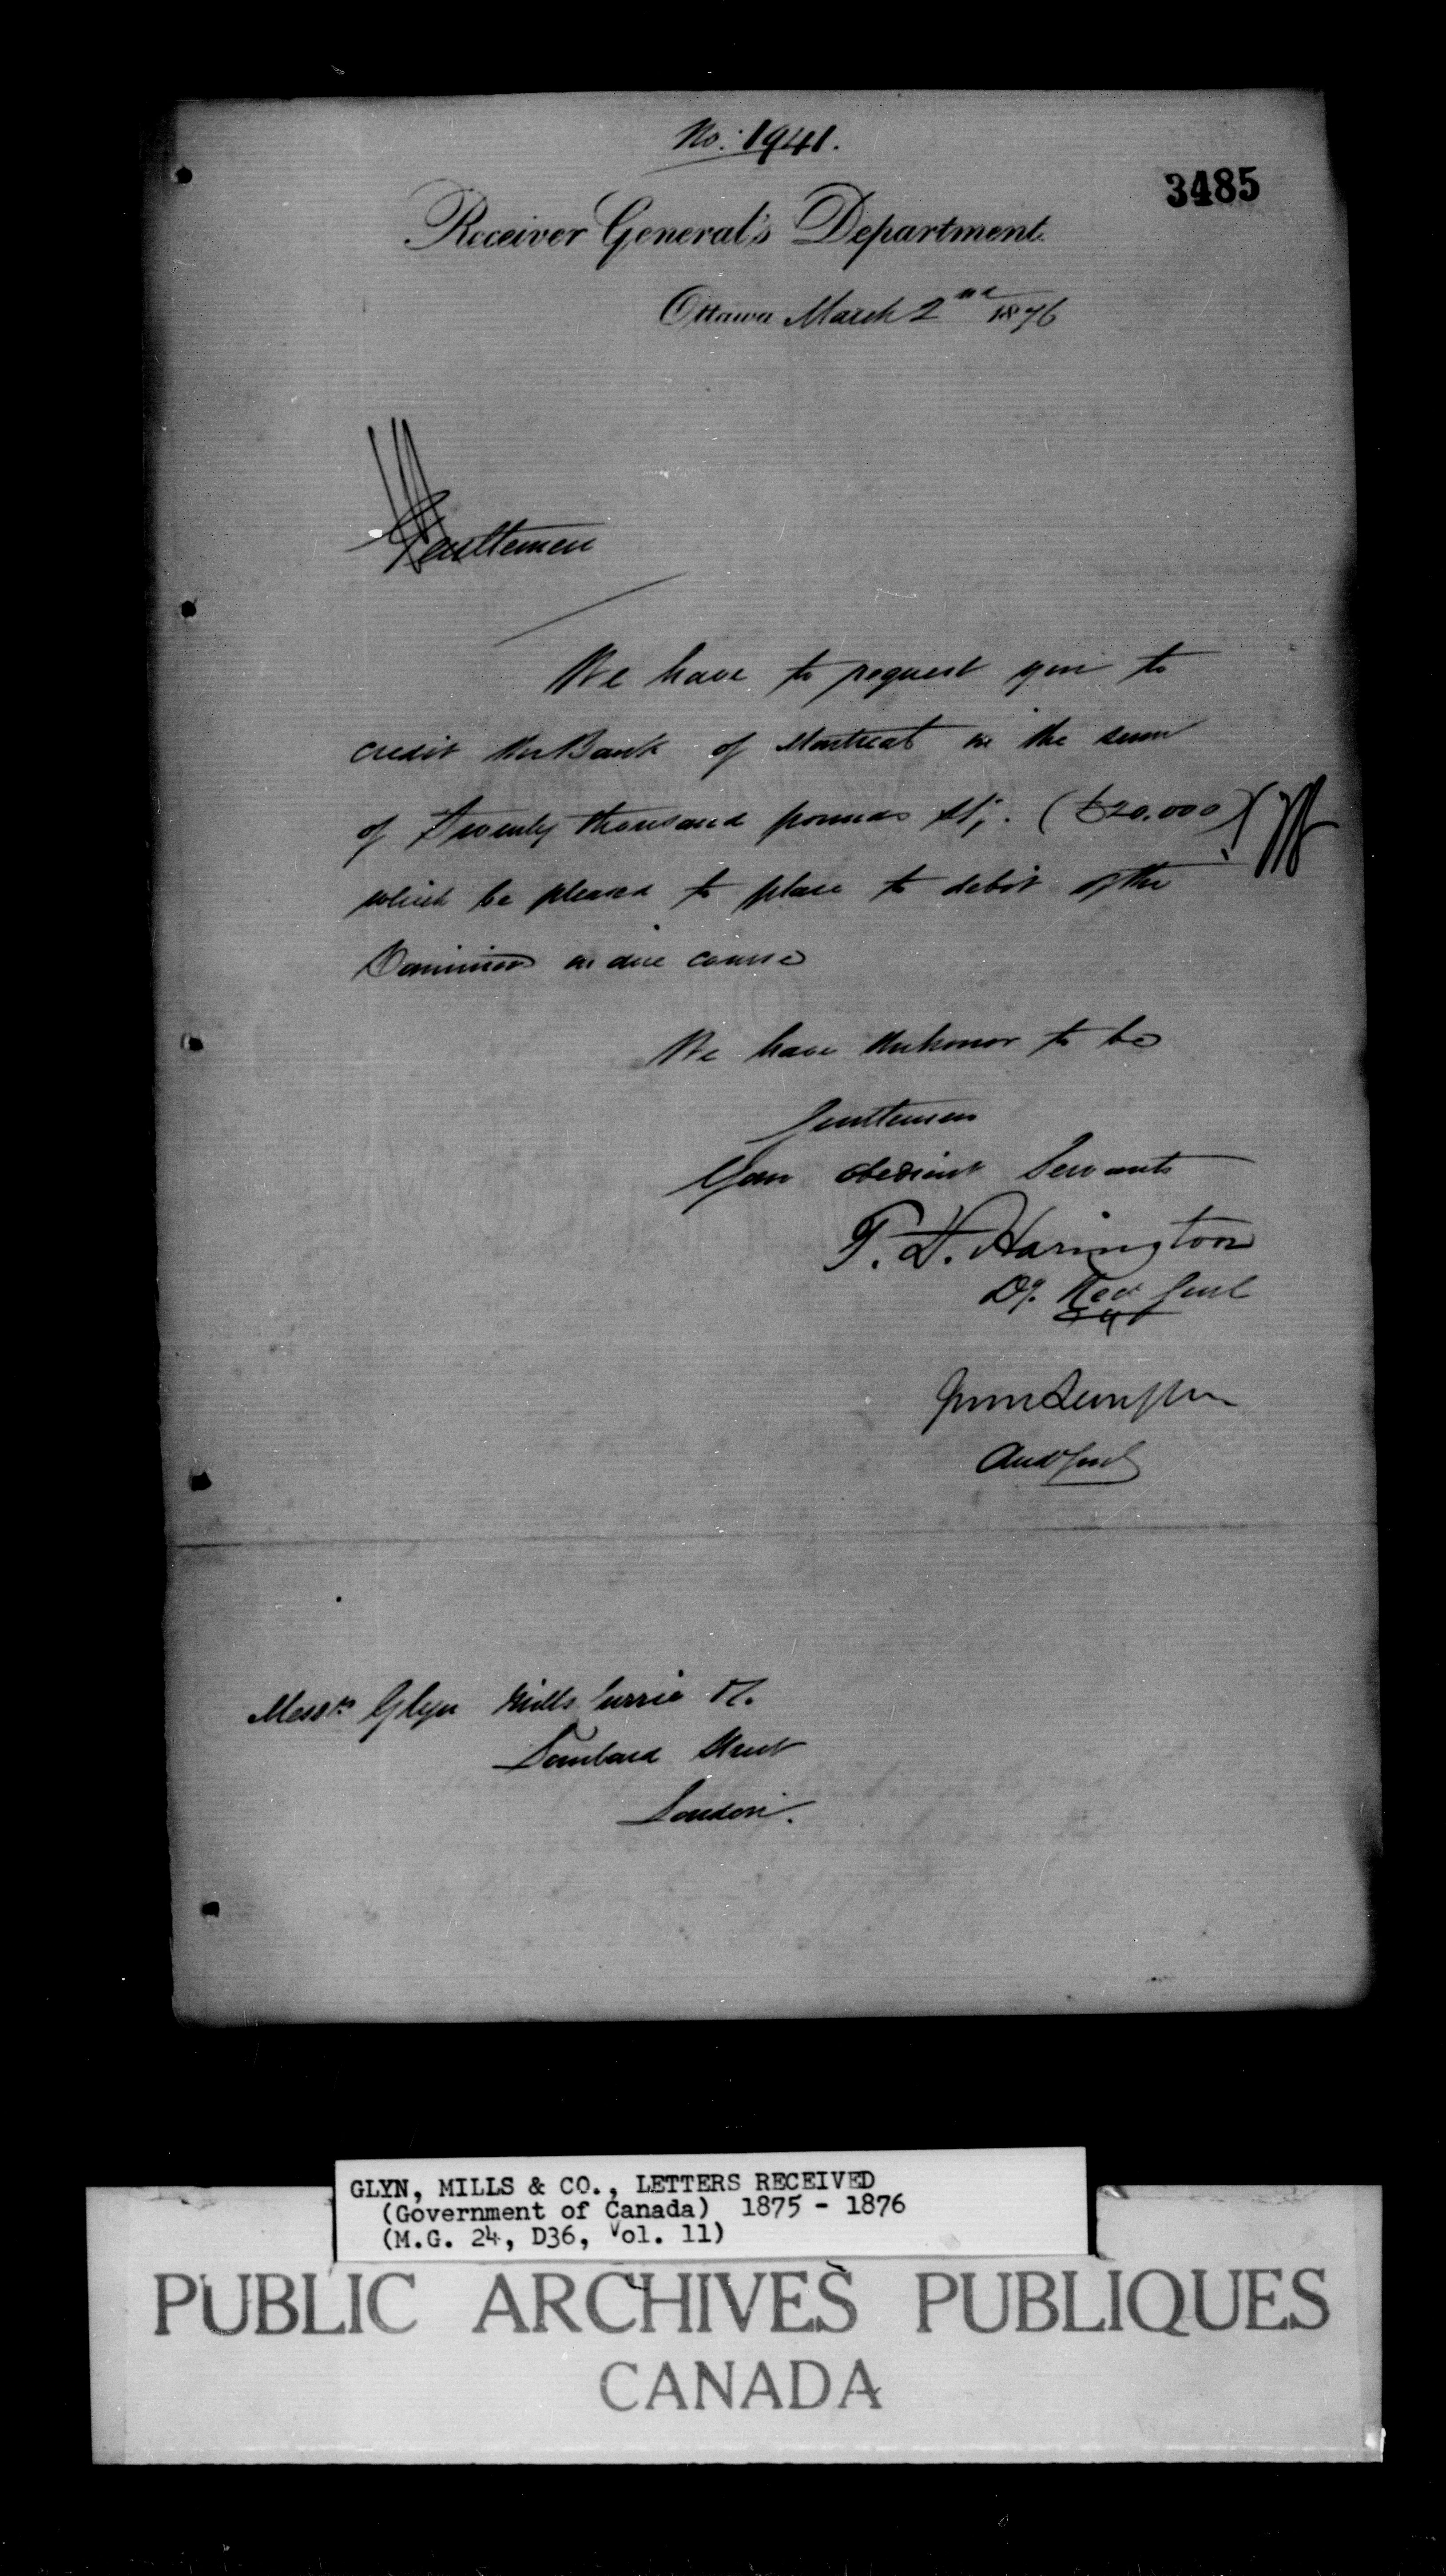 No. 1941.
3485
Receiver General's Department.
Ottawa March 2nd 1876
Gentlemen
We have to request you to
credit the Bank of Montreal in the sum
of Twenty thousand pounds Stg. (£20,000)
which be pleased to place to debit of the
Dominion in due course
We have the honor to be
Gentlemen
Your obedient Servants
T. D. Harington
Dy. Recr Genl
Aud Genl
Messrs Glyn Mills Currie &c.
Lombard Street
London.
GLYN, MILLS & CO., LETTERS RECEIVED
(Government of Canada) 1875 - 1876
(M.G. 24, D36, Vol. 11)
PUBLIC ARCHIVES PUBLIQUES
CANADA